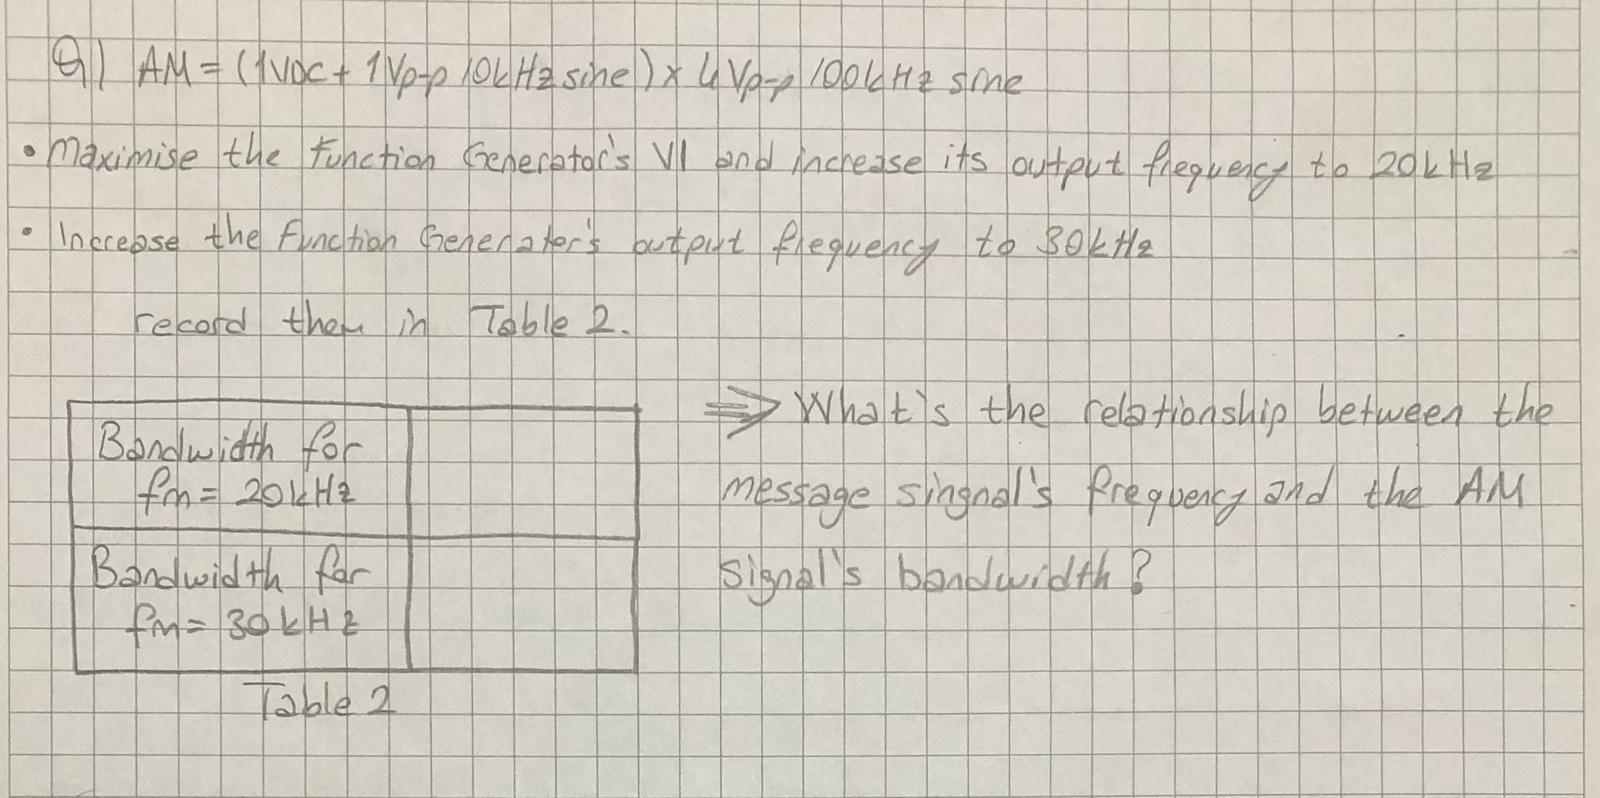 Q1) AM = (1VDC + 1Vp-p 10kHz sine) x 4Vp-p 100kHz sine
• Maximise the function Generator's VI and increase its output frequency to 20kHz
• Increase the function Generator's output frequency to 30kHz
record them in Table 2.
Bandwidth for
fm = 20kHz
Bandwidth for
fm = 30kHz
Table 2
⇒ What's the relationship between the
message singnal's frequency and the AM
signal's bandwidth?